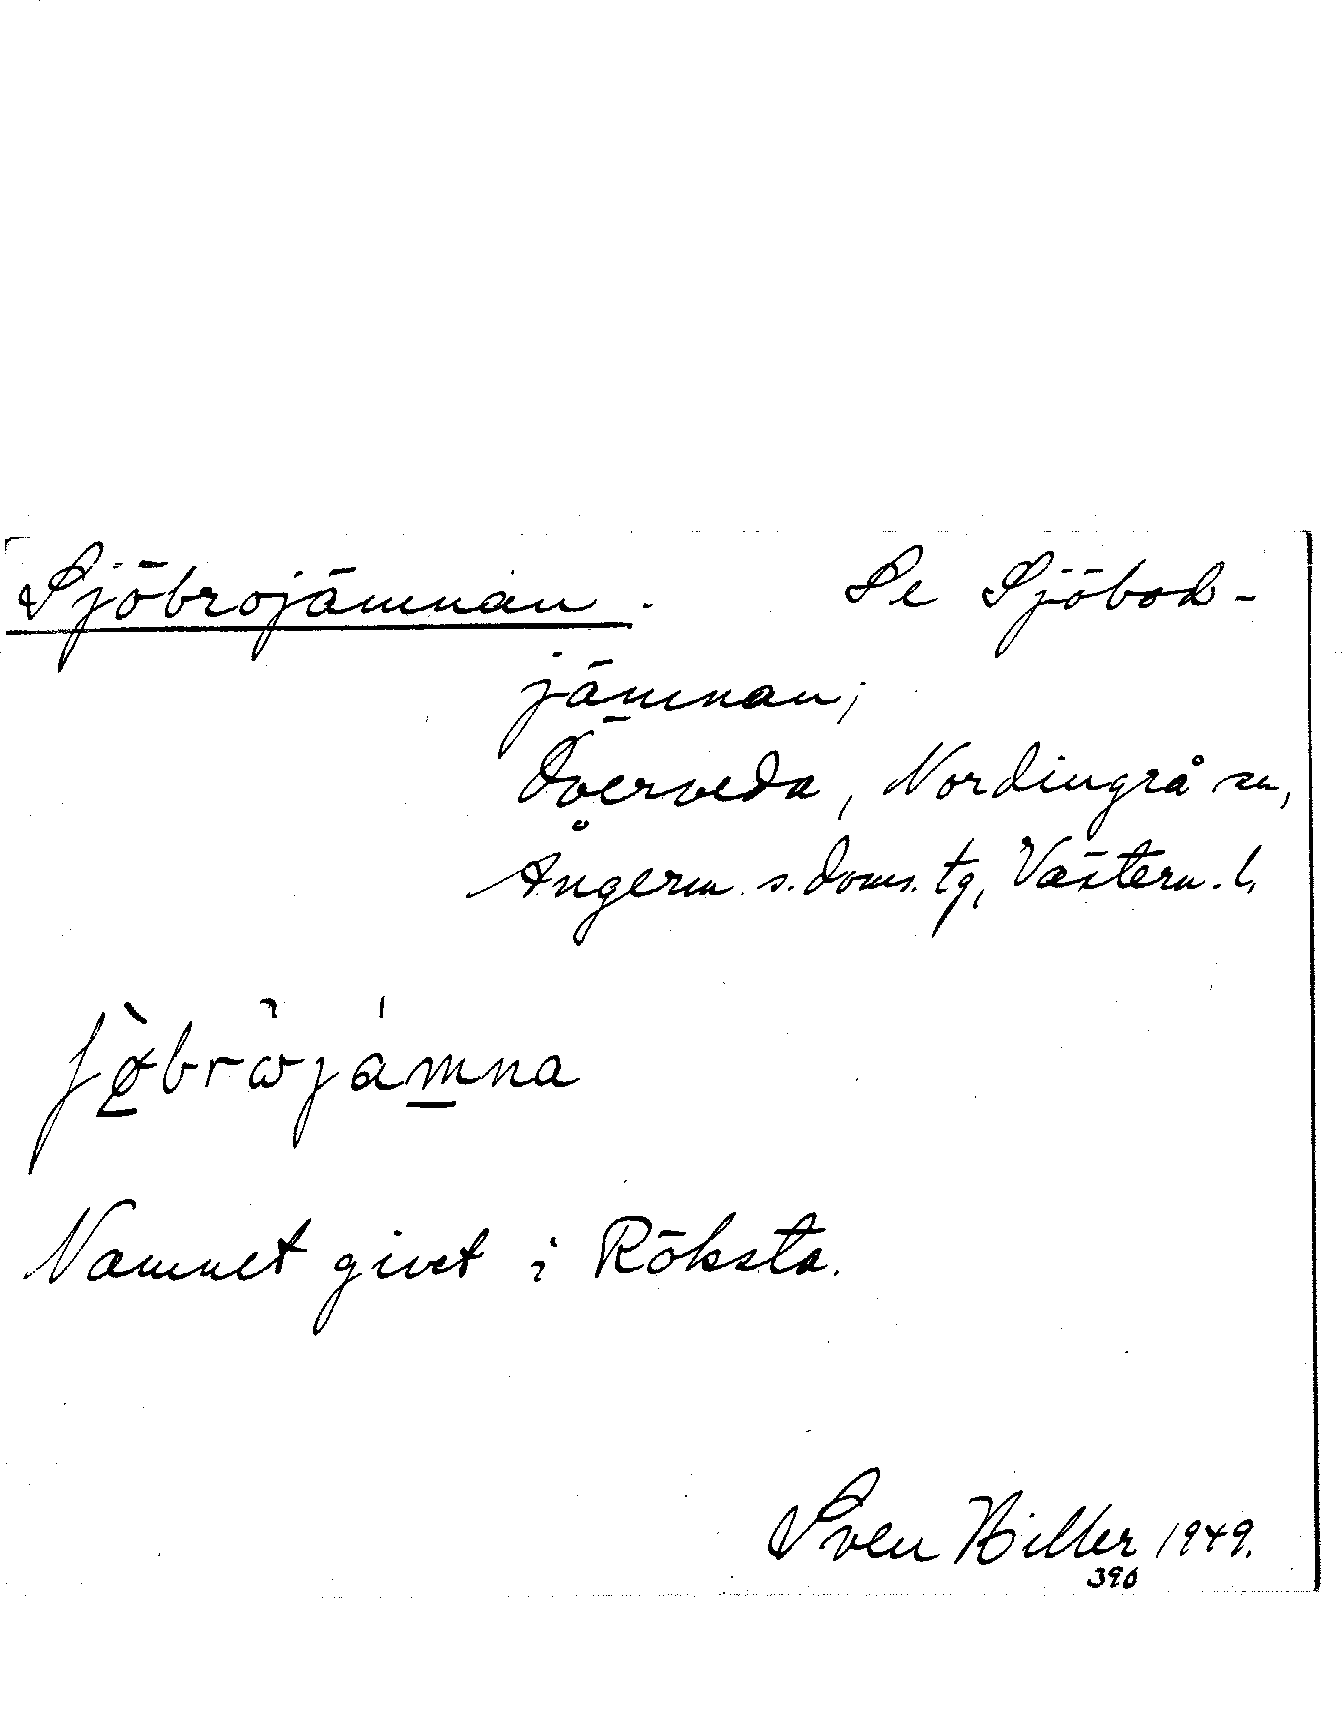 Sjöbrojämnan. Se Sjöbod-
jämnan;
Överveda, Nordingrå sn,
Ångerm. s. doms. tg, Västern. l.
ʃø̀brὼjámna
Namnet givet i Röksta.
Sven Hiller 1949.
390